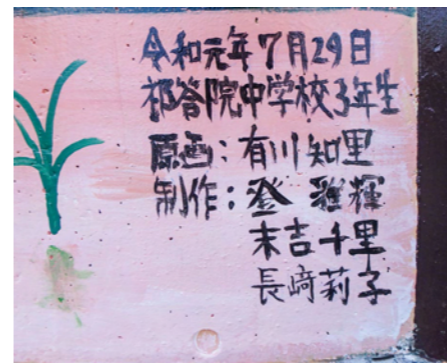 令和元年7月29日
祁答院中学校3年生
原画：有川知里
制作：登 雅輝
末吉千里
長﨑莉子